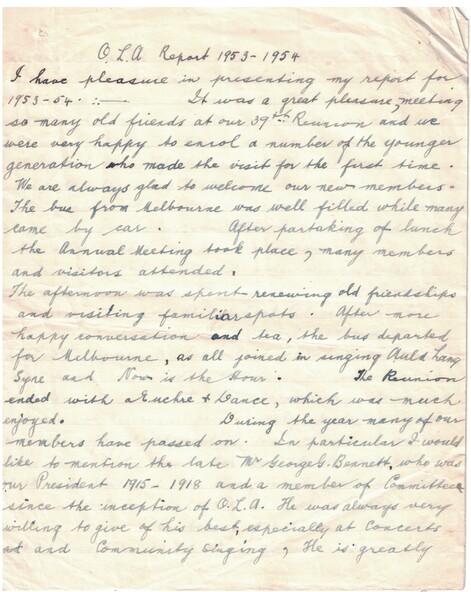 O.L.A Report 1953-1954
I have pleasure in presenting my report for
1953-54. :— It was a great pleasure, meeting
so many old friends at our 39th Reunion and we
were very happy to enrol a number of the younger
generation who made the visit for the first time.
We are always glad to welcome our new members-
The bus from Melbourne was well filled while many
came by car. After partaking of lunch
the Annual Meeting took place, many members
and visitors attended.
The afternoon was spent renewing old friendships
and visiting familiar spots. After more
happy conversation and tea, the bus departed
for Melbourne, as all joined in singing Auld Lang
Syne and Now is the Hour. The Reunion
ended with a Euchre & Dance, which was much
enjoyed. During the year many of our
members have passed on. In particular I would
like to mention the late Mr George G. Bennett, who was
our President 1915-1918 and a member of Committee
since the inception of O.L.A. He was always very
willing to give of his best, especially at Concerts
at and Community Singing, He is greatly